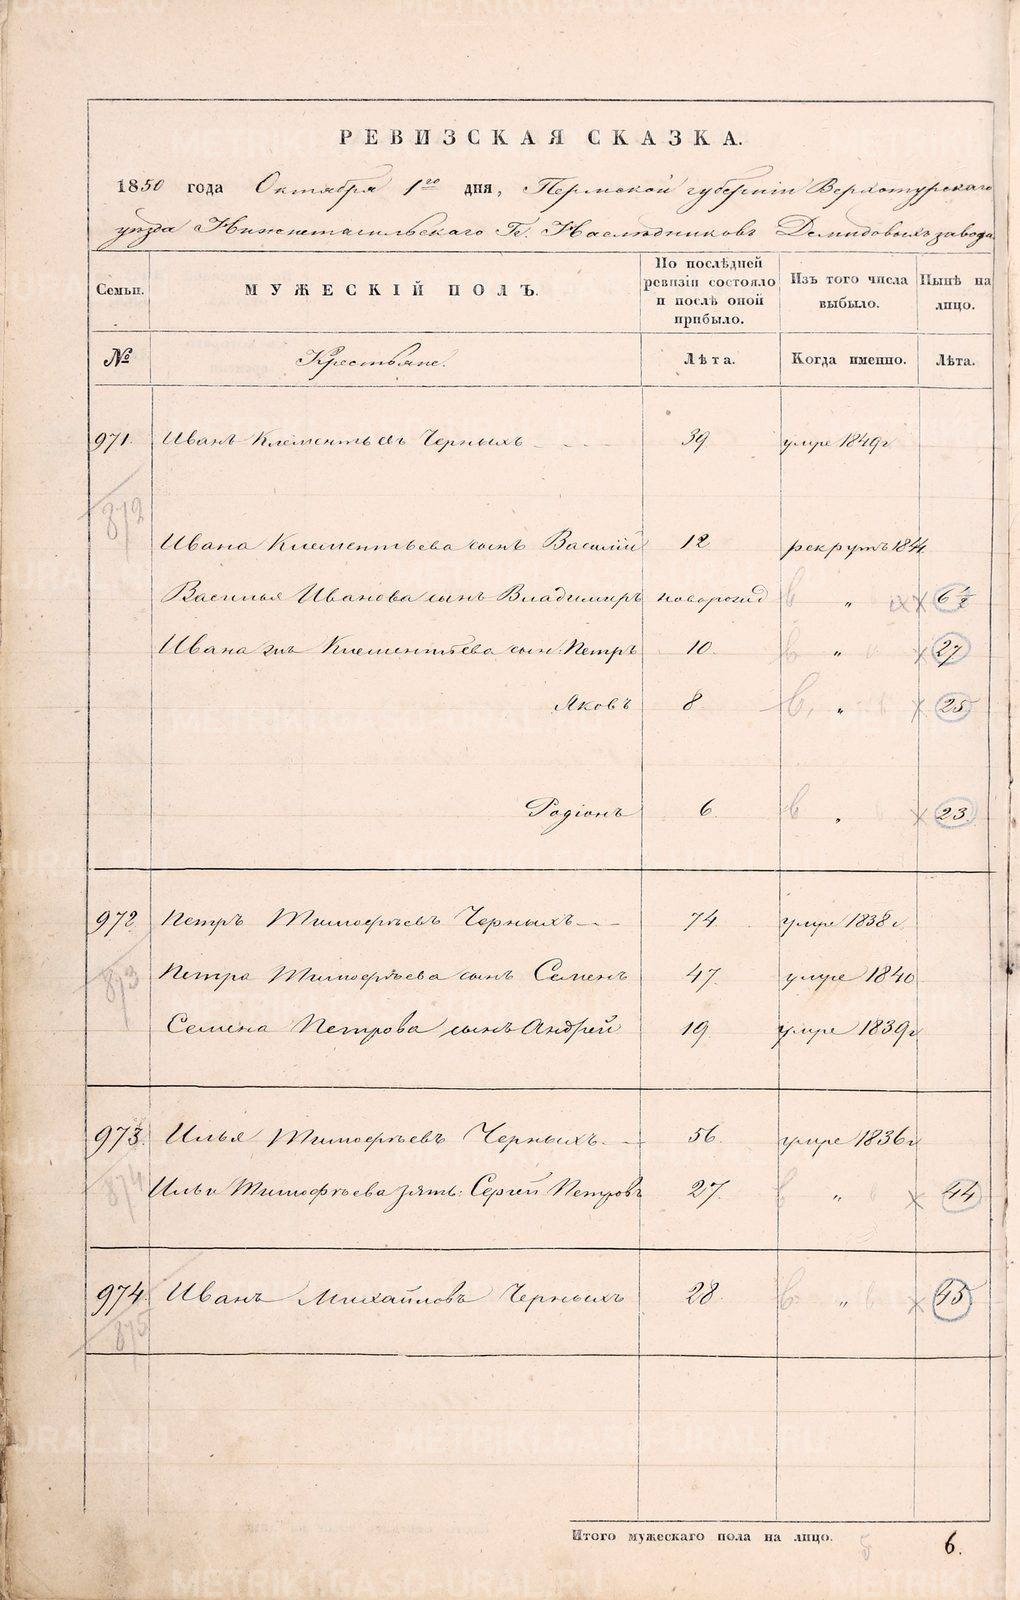 РЕВИЗСКАЯ СКАЗКА.
1850 года Октября 1го дня, Пермской губернiи Верхотурскаго
уѣзда Нижнетагильскаго Гг. Наслѣдниковъ Демидовыхъ завода
Семьи. МУЖЕСКIЙ ПОЛЪ. По послѣдней ревизiи состояло и послѣ оной прибыло. Изъ того числа выбыло. Нынѣ на лицо.
№ Крестьяне. Лѣта. Когда именно. Лѣта.
971. Иванъ Клементьевъ Черныхъ 39 умре 1849г
872
Ивана Клементьева сынъ Василiй 12 рекрутъ 1844
Василья Иванова сынъ Владимиръ новорожд „ 6 1/2
Ивана Клементьева сын: Петръ 10. „ 27
Яковъ 8 „ 25
Родiонъ 6. „ 23.
972 Петръ Тимофѣевъ Черныхъ 74. умре 1838г
873 Петра Тимофѣева сынъ Семенъ 47. умре 1840
Семена Петрова сынъ Андрей 19. умре 1839г
973. Илья Тимофѣевъ Черныхъ 56. умре 1836г
874 Ильи Тимофѣева зять: Сергей Петровъ 27. „ 44
974. Иванъ Михайловъ Черныхъ 28. „ 45
875
Итого мужескаго пола на лицо. 6.
METRIKI.GASO-URAL.RU